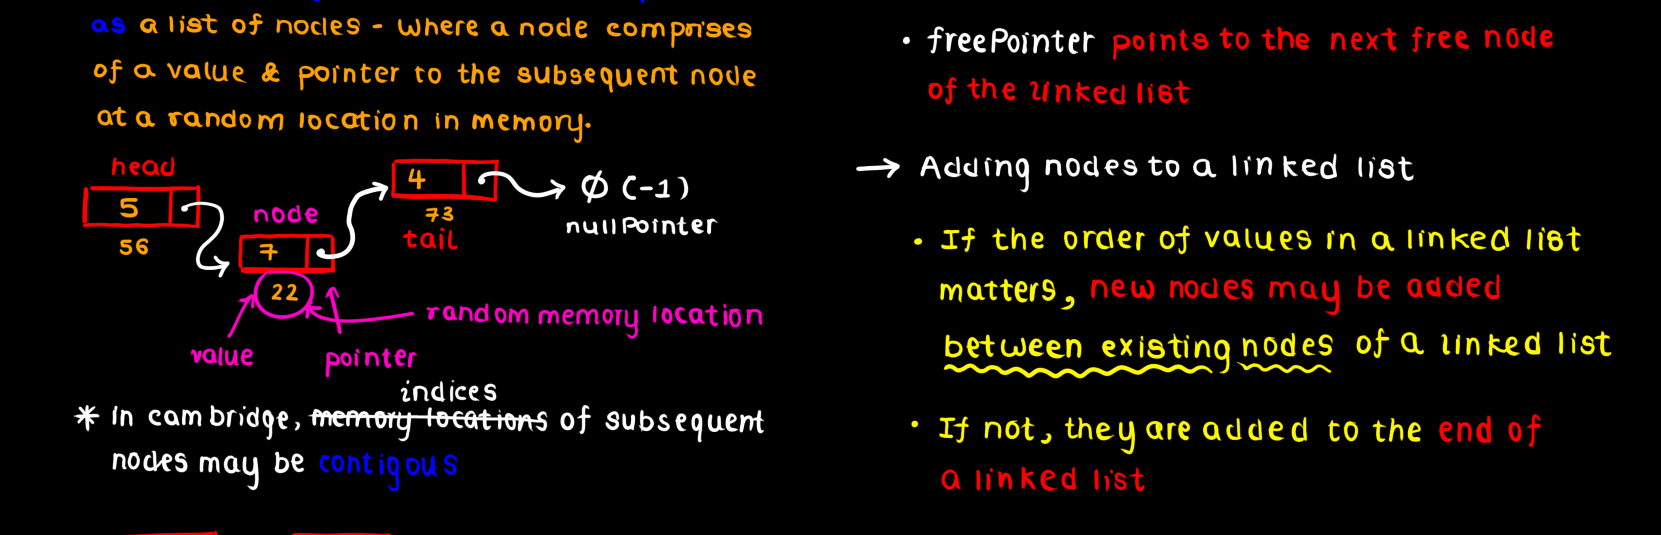 as a list of nodes - where a node comprises
of a value & pointer to the subsequent node
at a random location in memory.
head
5
56
node
7
22
4
73
tail
Ø (-1)
nullPointer
random memory location
value
pointer
indices
* In cambridge, memory locations of subsequent
nodes may be contigous
• freePointer points to the next free node
of the linked list
→ Adding nodes to a linked list
• If the order of values in a linked list
matters, new nodes may be added
between existing nodes of a linked list
• If not, they are added to the end of
a linked list